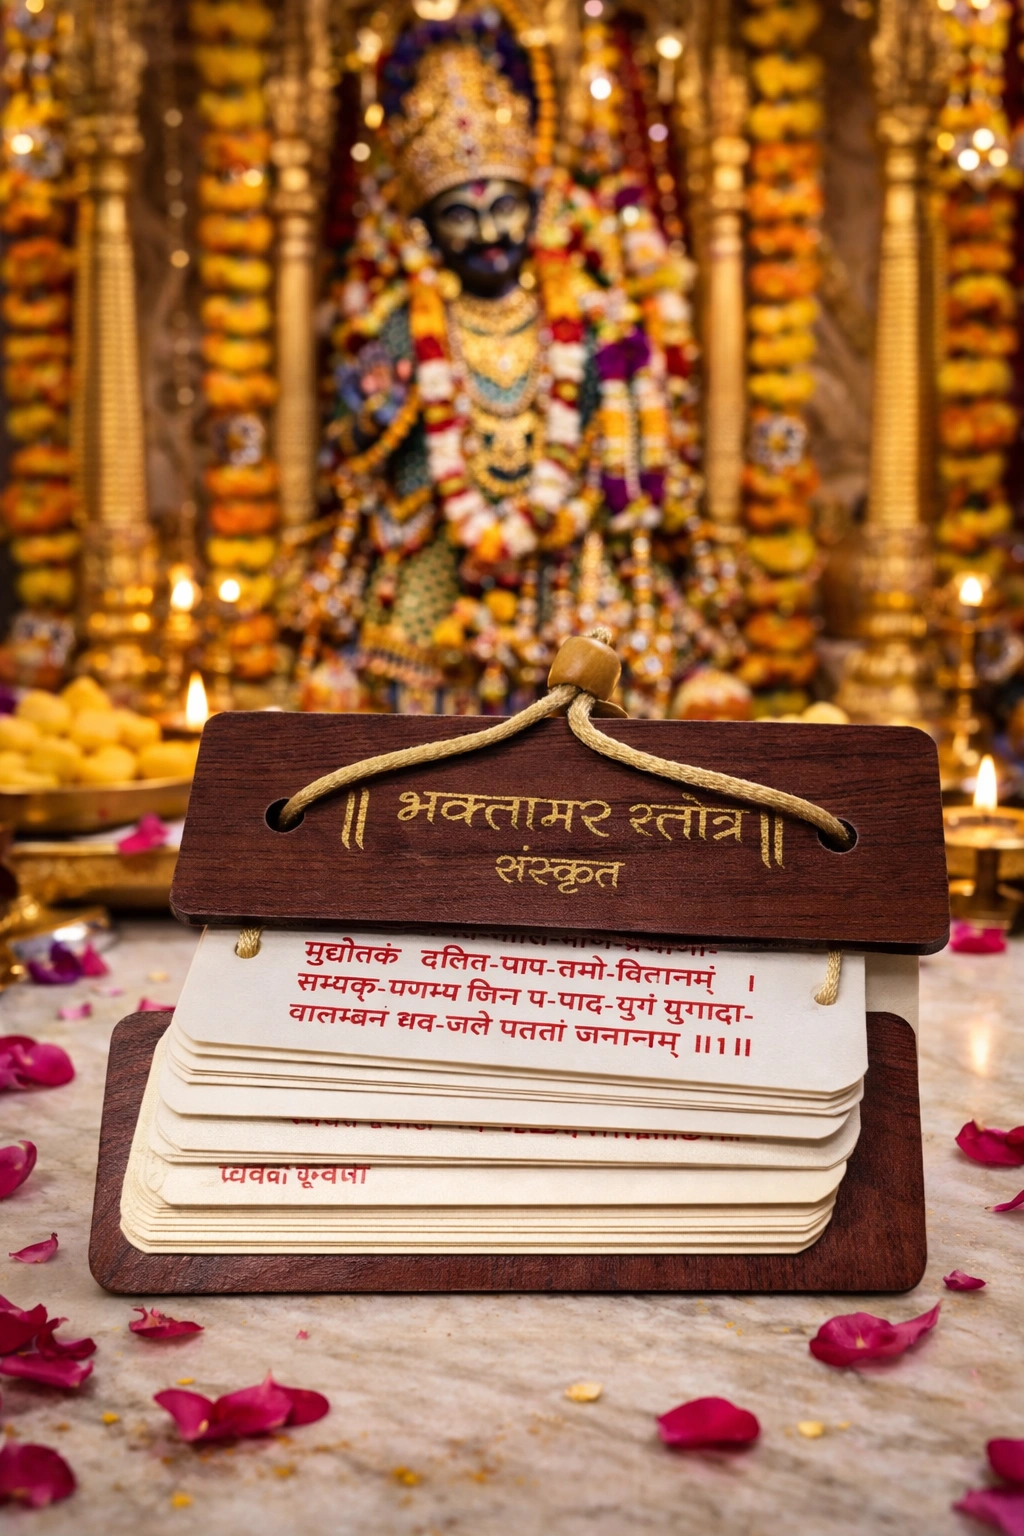 ॥ भक्तामर स्तोत्र ॥
संस्कृत
मुद्योतकं दलित-पाप-तमो-वितानम् ।
सम्यक्-पणम्य जिन प-पाद-युगं युगादा-
वालम्बनं धव-जले पततां जनानाम् ॥1॥